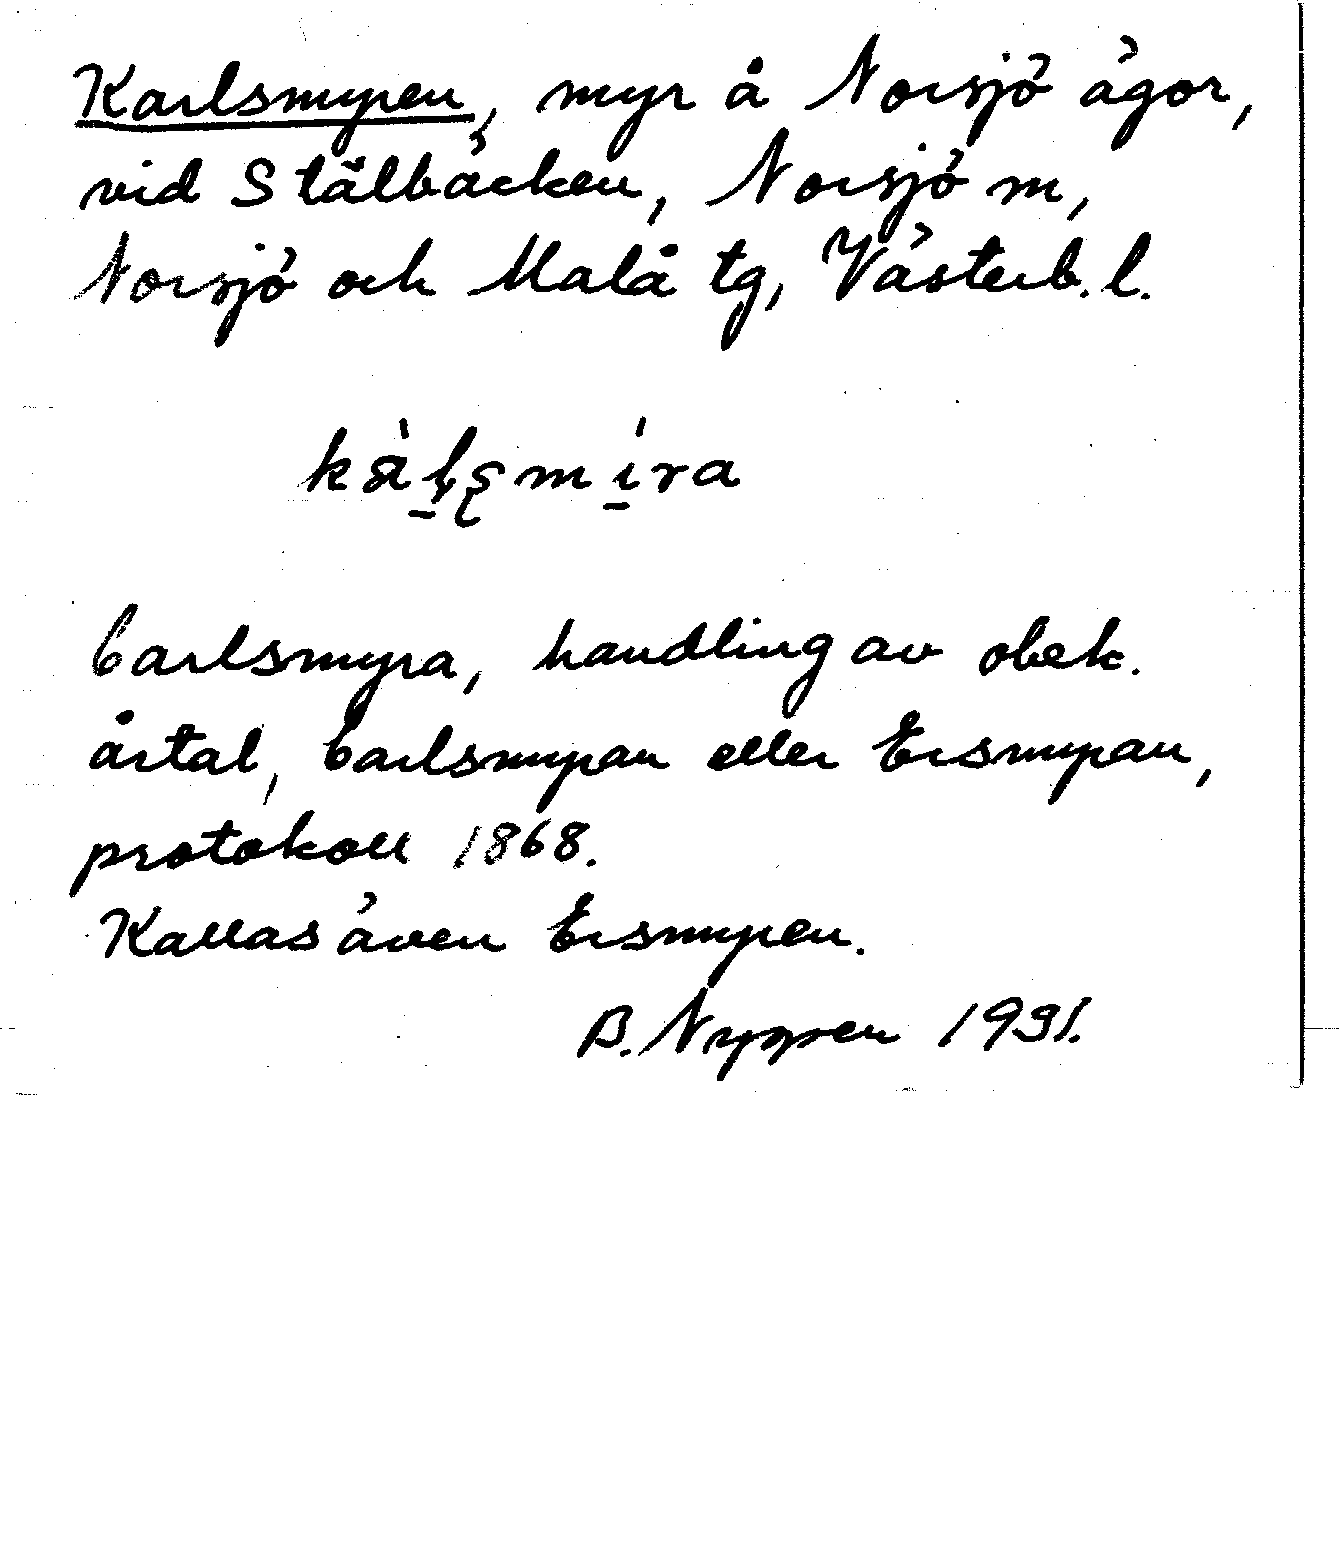 Karlsmyren, myr å Norsjö ägor,
vid Stälbäcken, Norsjö sn,
Norsjö och Malå tg, Västerb. l.
Carlsmyra, handling av obek.
årtal, Carlsmyran eller Ersmyran,
protokoll 1868.
Kallas även Ersmyren.
B. Nygren 1931.